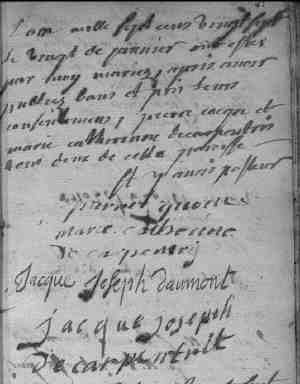 L'an mille sept cens vingt sept
le vingt de janvier ont estez
par moy mariez, apres avoir
publiez bans et pris leurs
consentemens, pierre cacque et
marie catherinne decarpentris
tous deux de cette paroisse
pierre
marie catherinne
decarpentri
Jacque Joseph daumont
jacque joseph
Decarpentrit